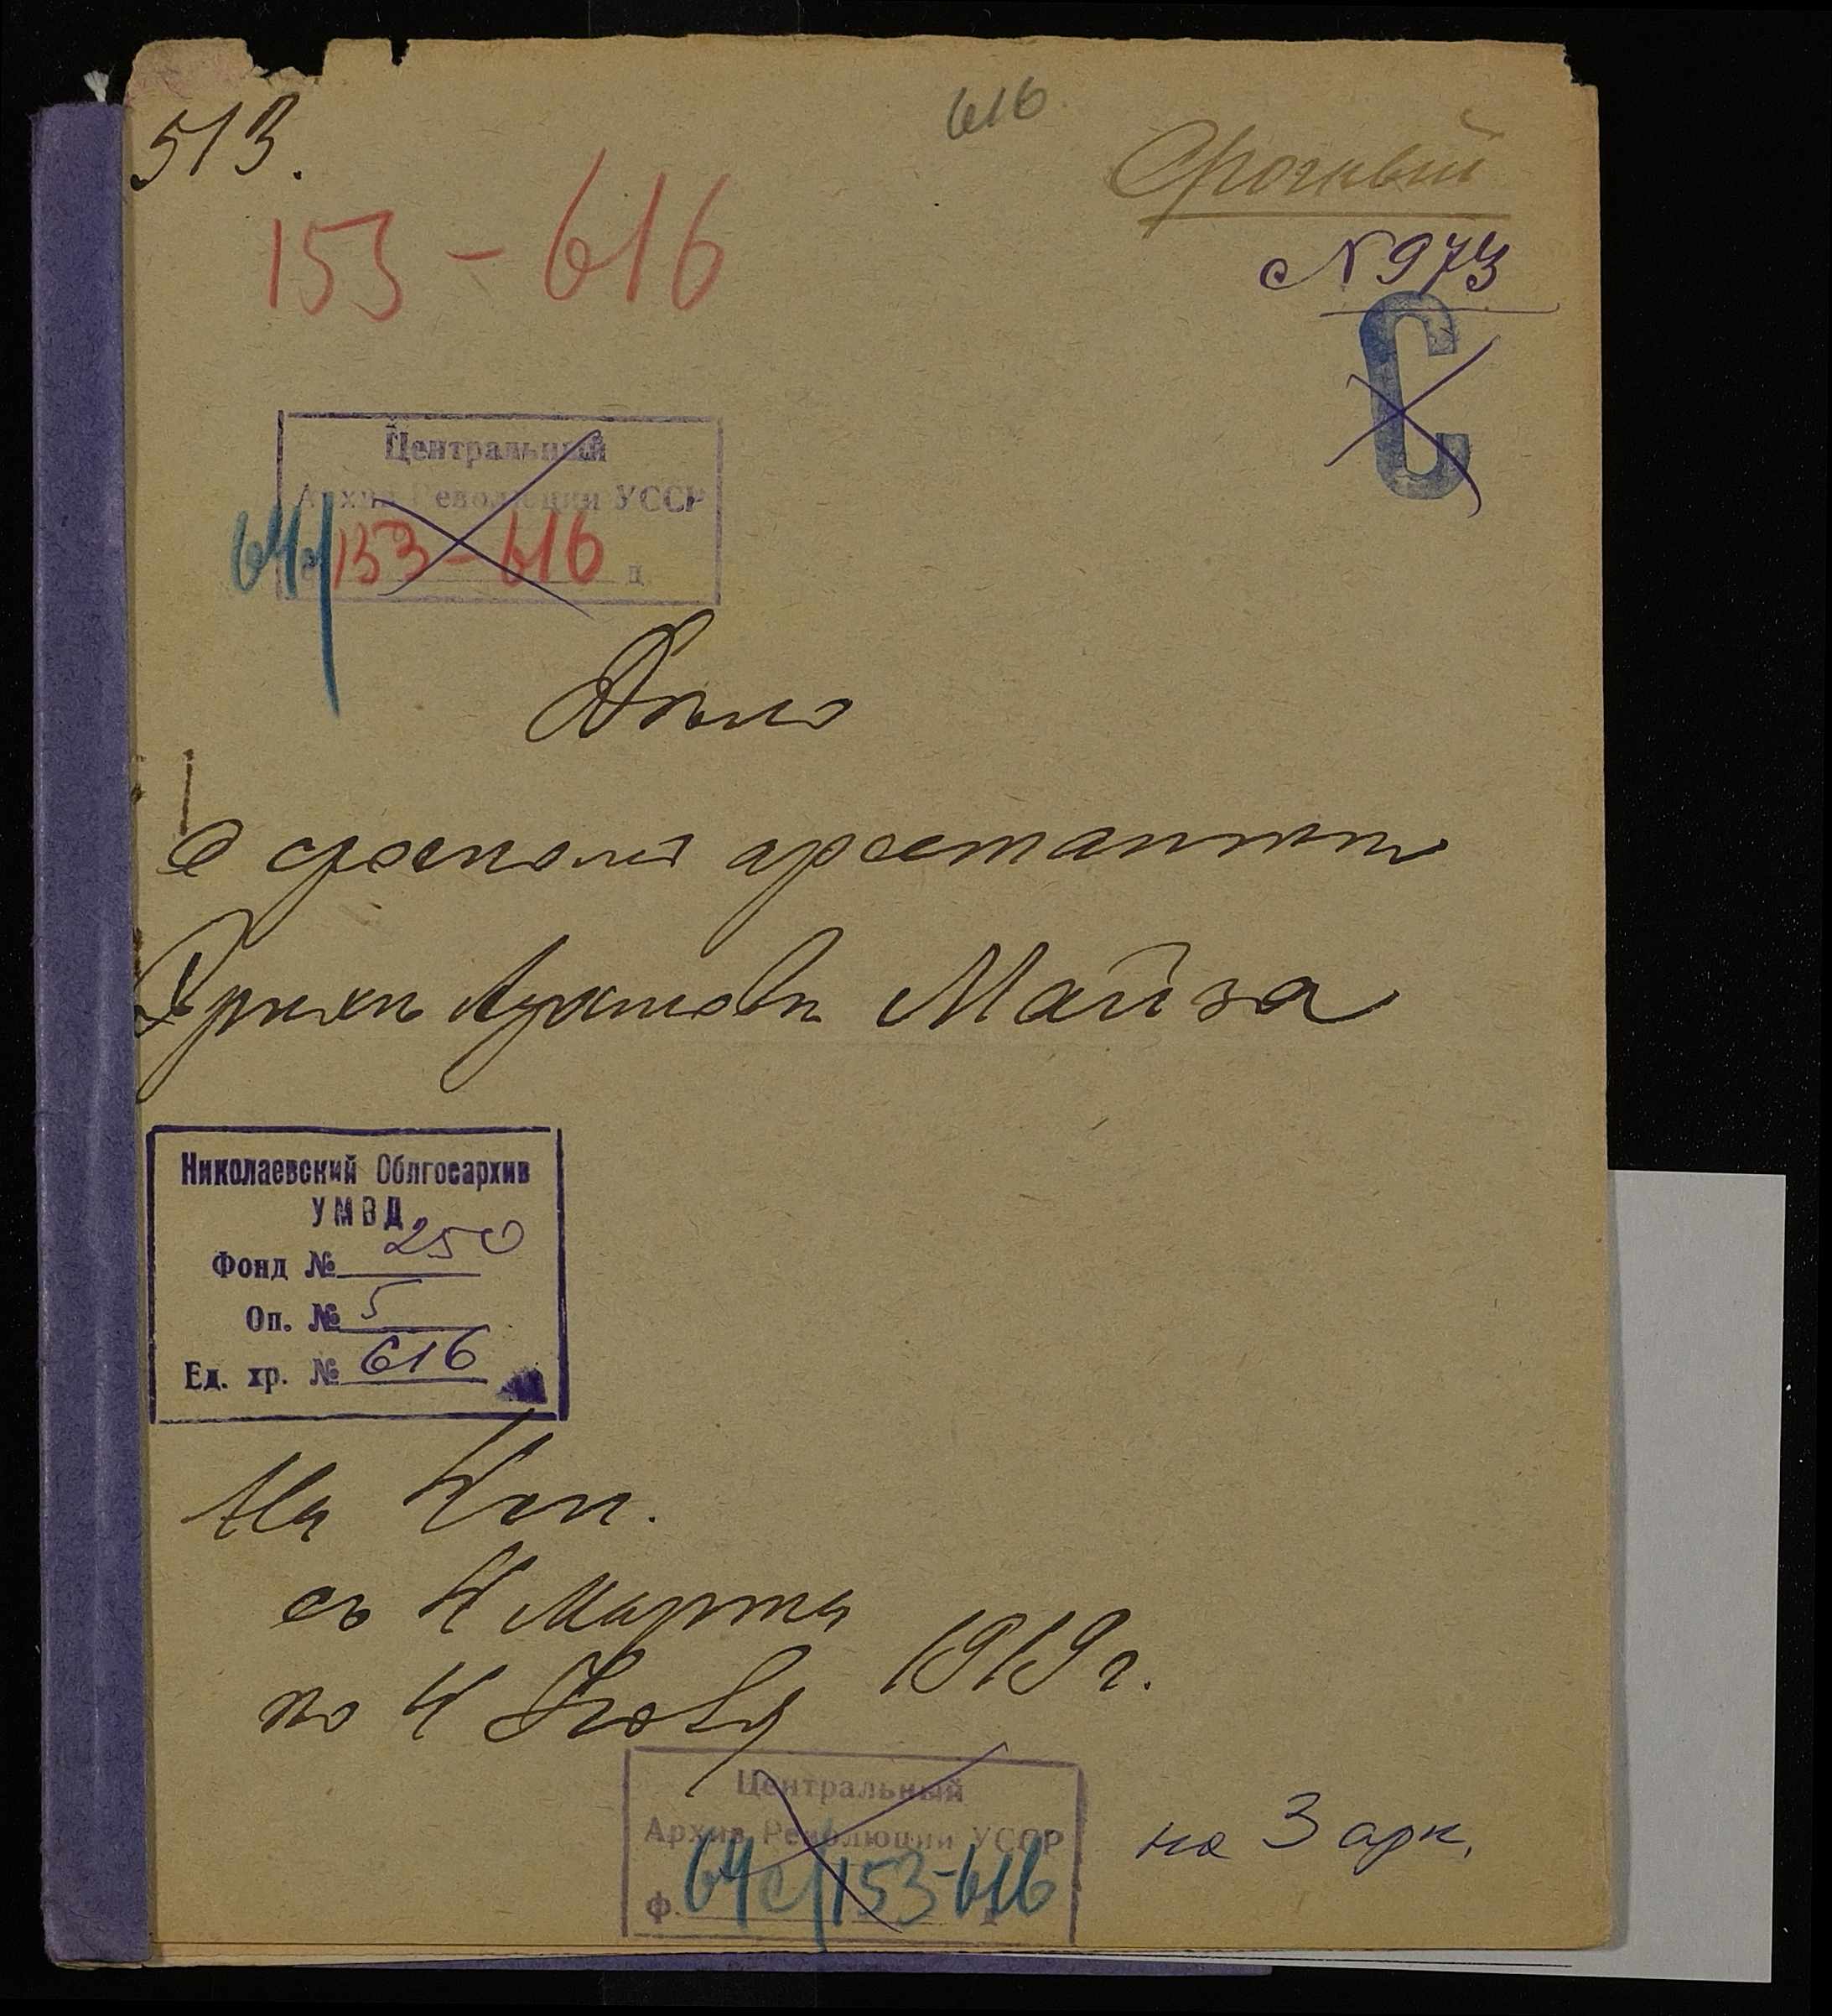 513.
616
Срочный
153-616
№ 973
С
Центральный
Архив Революции УССР
64с/153-616 д
Дѣло
О срочномъ арестантѣ
Майза
Николаевский Облгосархив
УМВД
Фонд № 250
Оп. № 5
Ед. хр. № 616
На
съ 4 Марта
по 4 1919 г.
Центральный
Архив Революции УССР
ф. 64с/153-616
на 3 арк.